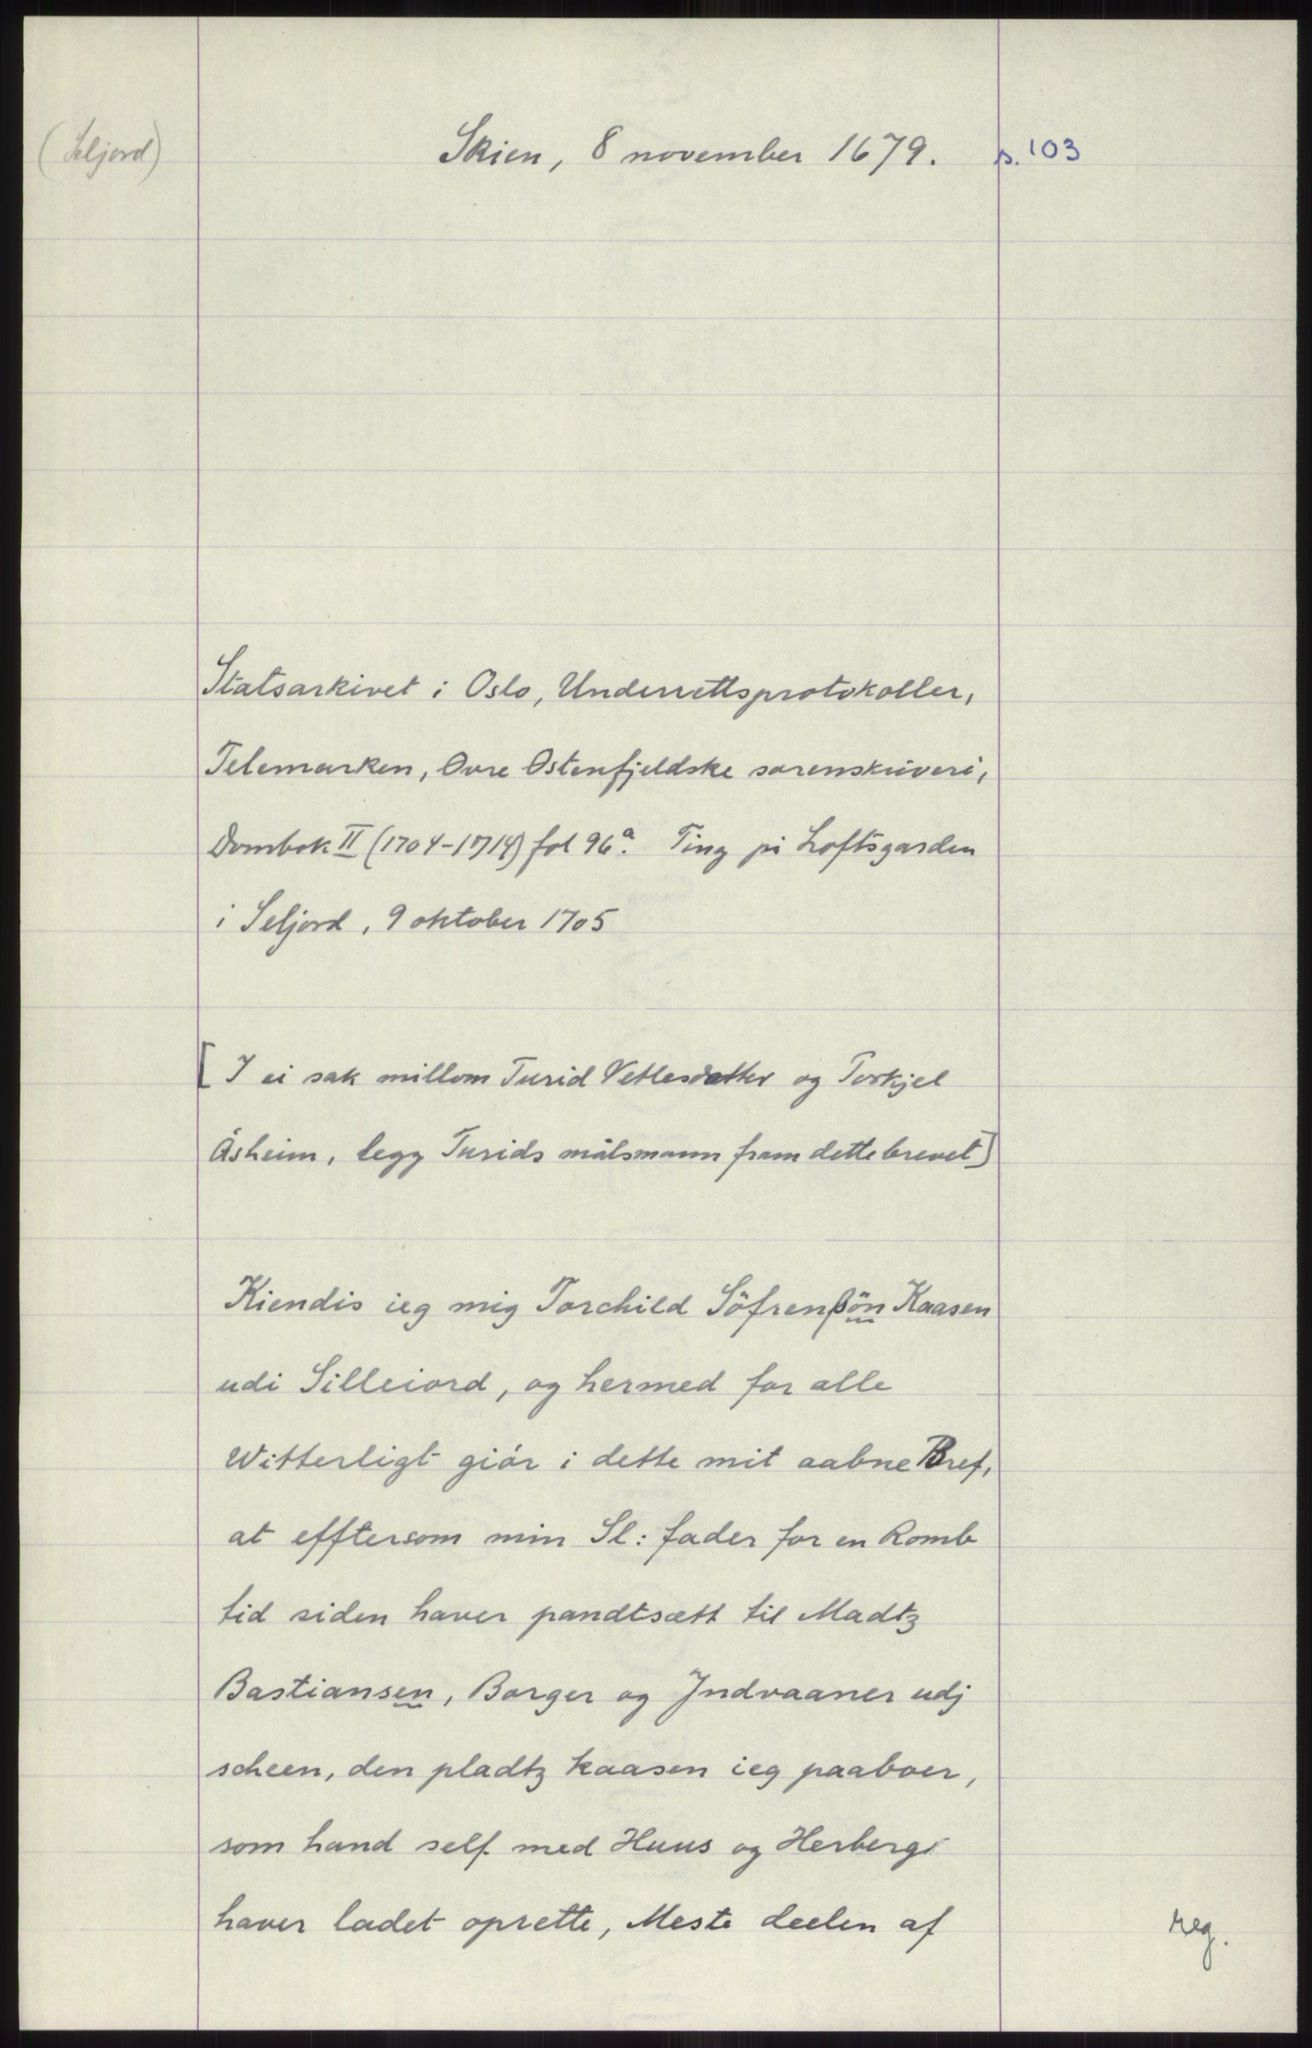 (Seljord)
Skien, 8 november 1679. s. 103
Statsarkivet i Oslo, Underrettsprotokoller,
Telemarken, Øvre Østenfjeldske sorenskriveri,
Dombok II (1704-1714) fol 96a. Ting på Loftsgarden
i Seljord, 9 oktober 1705
[I ei sak millom Turid Vetlesdotter og Torkjel
Åsheim, legg Turids målsmann fram dette brevet]
Kiendis ieg mig Torchild Söfrenßön Kaasen
udi Silleiord, og hermed for alle
Witterligt giör i dette mit aabne Bref,
at efftersom min Sl: fader for en Romb
tid siden haver pandtsætt til Madtz
Bastiansen, Borger og Jndvaaner udj
scheen, den pladtz kaasen ieg paaboer,
som hand self med Huus og Herberge
haver ladet oprette, Meste deelen af
reg.